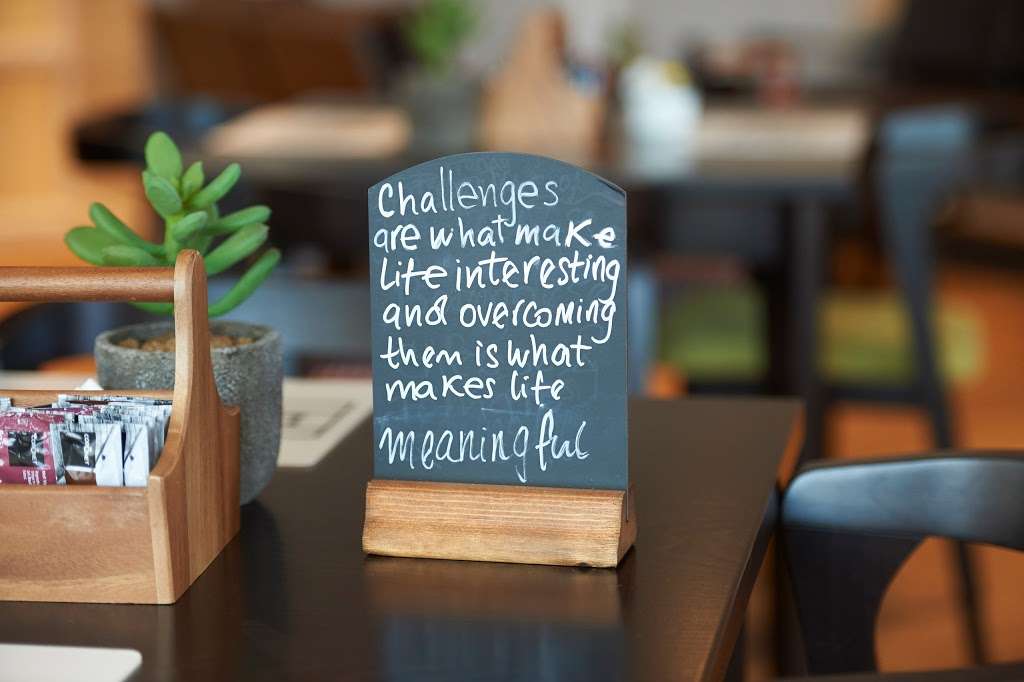 Challenges
are what make
life interesting
and overcoming
them is what
makes life
meaningful